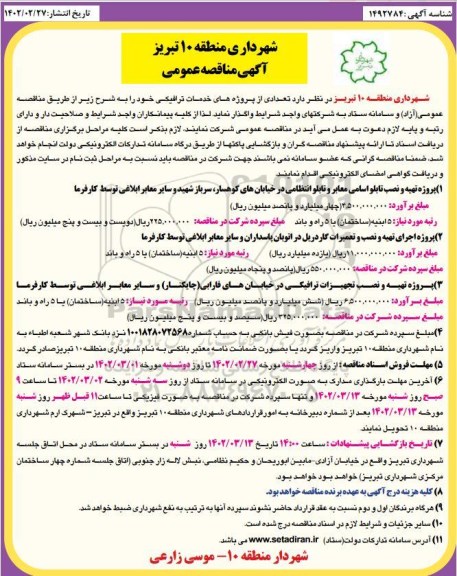 شناسه آگهی :۱۴۹۲۷۸۴
تاریخ انتشار:۱۴۰۲/۰۲/۲۷
شهرداری منطقه ۱۰ تبریز
آگهی مناقصه عمومی
شهرداری منطقه ۱۰ تبریز در نظر دارد تعدادی از پروژه های خدمات ترافیکی خود را به شرح زیر از طریق مناقصه
عمومی(آزاد) و سامانه ستاد به شرکتهای واجد شرایط واگذار نماید لذا از کلیه پیمانکاران واجد شرایط و صلاحیت دار و دارای
رتبه و پایه لازم دعوت به عمل می آید در مناقصه عمومی شرکت نمایند. لازم بذکر است کلیه مراحل برگزاری مناقصه از
دریافت اسناد تا ارائه پیشنهاد مناقصه گران و بازگشایی پاکتها از طریق درگاه سامانه تدارکات الکترونیکی دولت انجام خواهد
شد، ضمنا مناقصه گرانی که عضو سامانه نمی باشند جهت شرکت در مناقصه باید نسبت به مراحل ثبت نام در سایت مذکور
و دریافت گواهی امضای الکترونیکی اقدام نمایند.
۱)پروژه تهیه و نصب تابلو اسامی معابر و تابلو انتظامی در خیابان های کوهسار، سرباز شهید و سایر معابر ابلاغی توسط کارفرما
مبلغ برآورد: ۴،۵۰۰،۰۰۰،۰۰۰(چهار میلیارد و پانصد میلیون ریال)
رتبه مورد نیاز: ۵ ابنیه(ساختمان) یا ۵ راه و باند مبلغ سپرده شرکت در مناقصه: ۲۲۵،۰۰۰،۰۰۰ریال(دویست و بیست و پنج میلیون ریال)
۲)پروژه اجرای تهیه و نصب و تعمیرات گاردریل در اتوبان پاسداران و سایر معابر ابلاغی توسط کارفرما
مبلغ برآورد: ۱۱،۰۰۰،۰۰۰،۰۰۰ریال (یازده میلیارد ریال) رتبه مورد نیاز: ۵ ابنیه(ساختمان) یا ۵ راه و باند
مبلغ سپرده شرکت در مناقصه: ۵۵۰،۰۰۰،۰۰۰ ریال(پانصد و پنجاه میلیون ریال)
۳)پروژه تهیه و نصب تجهیزات ترافیکی در خیابان های فارابی(چایکنار) و سایر معابر ابلاغی توسط کارفرما
مبلغ برآورد: ۶،۵۰۰،۰۰۰،۰۰۰ ریال (شش میلیارد و پانصد میلیون ریال) رتبه مورد نیاز: ۵ ابنیه(ساختمان) یا ۵ راه و باند
مبلغ سپرده شرکت در مناقصه: ۳۲۵،۰۰۰،۰۰۰ ریال(سیصد و بیست و پنج میلیون ریال)
۴)مبلغ سپرده شرکت در مناقصه بصورت فیش بانکی به حساب شماره ۱۰۰۱۸۲۸۰۷۲۵۶۸ نزد بانک شهر شعبه اطباء به
نام شهرداری منطقه ۱۰ تبریز واریز گردد یا بصورت ضمانت نامه معتبر بانکی به نام شهرداری منطقه ۱۰ تبریز صادر گردد.
۵) مهلت فروش اسناد مناقصه: از روز چهارشنبه مورخه ۱۴۰۲/۰۲/۲۷ تا روز دوشنبه مورخه ۱۴۰۲/۰۳/۰۱ در بستر سامانه ستاد
۶) آخرین مهلت بارگذاری مدارک به صورت الکترونیکی در سامانه ستاد از روز سه شنبه مورخه ۱۴۰۲/۰۳/۰۲ تا ساعت ۹
صبح روز شنبه مورخه ۱۴۰۲/۰۳/۱۳ و تنها سپرده شرکت در مناقصه به صورت فیزیکی تا ساعت ۱۱ قبل ظهر روز شنبه
مورخه ۱۴۰۲/۰۳/۱۳ بعد از شماره دبیرخانه به امور قراردادهای شهرداری منطقه ۱۰ تبریز واقع در تبریز – شهرک ارم شهرداری
منطقه ۱۰ تحویل نمایند.
۷) تاریخ بازگشایی پیشنهادات : ساعت ۱۴:۰۰ تاریخ ۱۴۰۲/۰۳/۱۳ روز شنبه در بستر سامانه ستاد در محل اتاق جلسه
شهرداری تبریز واقع در خیابان آزادی-مابین ابوریحان و حکیم نظامی، نبش لاله زار جنوبی (اتاق جلسه شماره چهار ساختمان
مرکزی شهرداری تبریز) خواهد بود خواهد بود.
۸) کلیه هزینه درج آگهی به عهده برنده مناقصه خواهد بود.
۹) هرگاه برندگان اول و دوم نسبت به عقد قرارداد حاضر نشوند سپرده آنها به ترتیب به نفع شهرداری ضبط خواهد شد.
۱۰) سایر جزئیات و شرایط لازم در اسناد مناقصه درج شده است.
۱۱) آدرس سامانه تدارکات دولت(ستاد) www.setadiran.ir می باشد.
شهردار منطقه ۱۰ – موسی زارعی